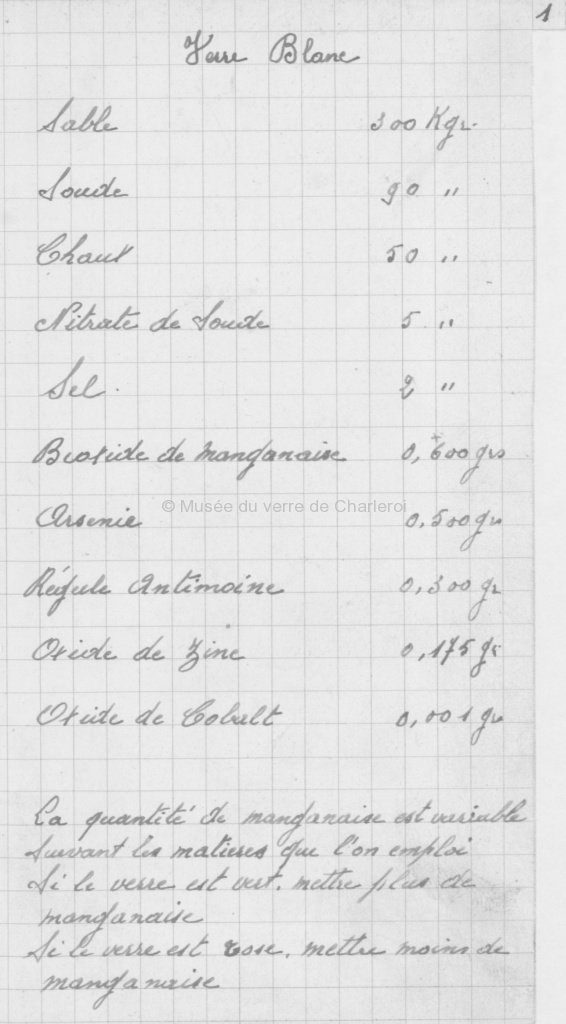 1
Verre Blanc
Sable 300 Kgr.
Soude 90 "
Chaux 50 "
Nitrate de Soude 5 "
Sel. 2 "
Bioxide de manganaise 0,600 grs
© Musée du verre de Charleroi
Arsenic 0,500 gr
Régule Antimoine 0,300 gr
Oxide de Zinc 0,175 gr
Oxide de Cobalt 0,001 gr
La quantité de manganaise est variable
suivant les matieres que l'on emploi
Si le verre est vert, mettre plus de
manganaise
Si le verre est rose, mettre moins de
manganaise